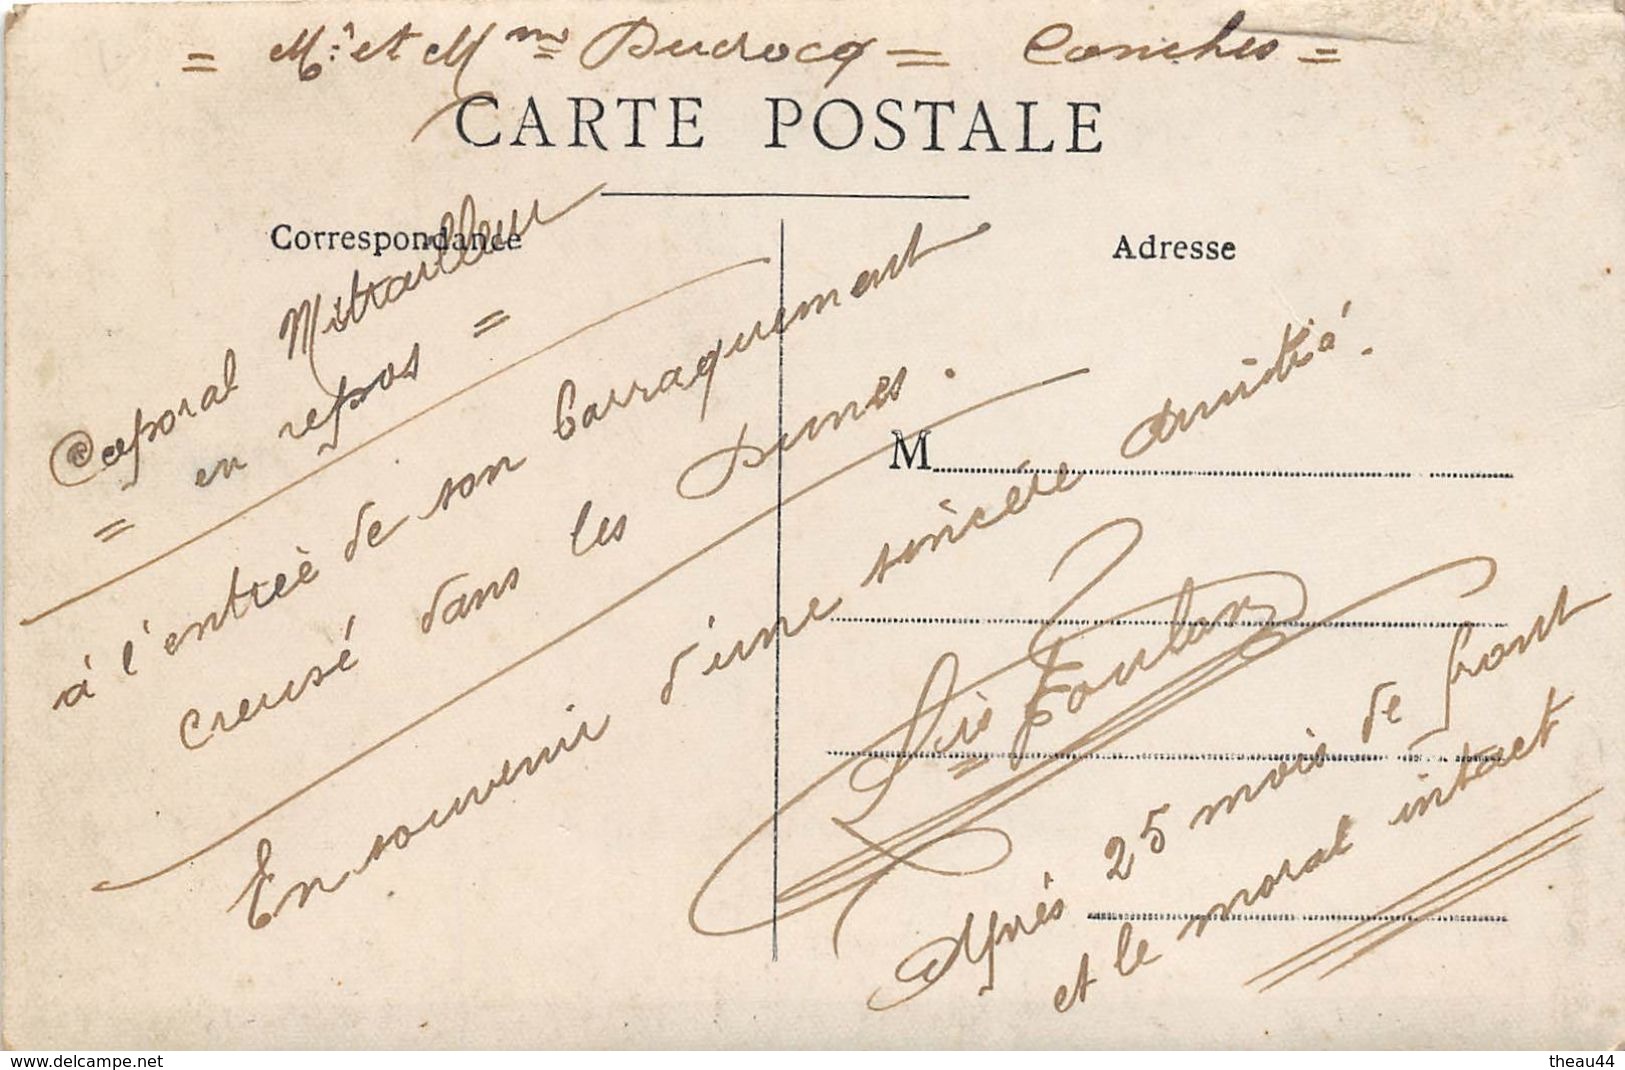 = Mr. et Mme Ducrocq = Conches =
CARTE POSTALE
Correspondance
Adresse
Caporal Mitrailleur
= en repos =
à l'entrée de son barraquement
creusé dans les Dunes.
M
En souvenir d'une sincère Amitié.
Après 25 mois de front
et le moral intact
www.delcampe.net
theau44